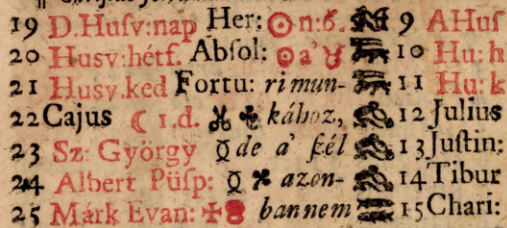 19 D. Husv: nap Her: ☉ n: 6. 9 A Hus
20 Husv: hétf. Absol: ☉ a' ♉ 10 Hu: h
21 Husv. ked Fortu: ri mun- 11 Hu: k
22 Cajus ☾ 1. d. kához, 12 Julius
23 Sz: György ☿ de a' szél 13 Justin:
24 Albert Püsp: ☿ azon- 14 Tibur
25 Márk Evan: bannem 15 Chari: